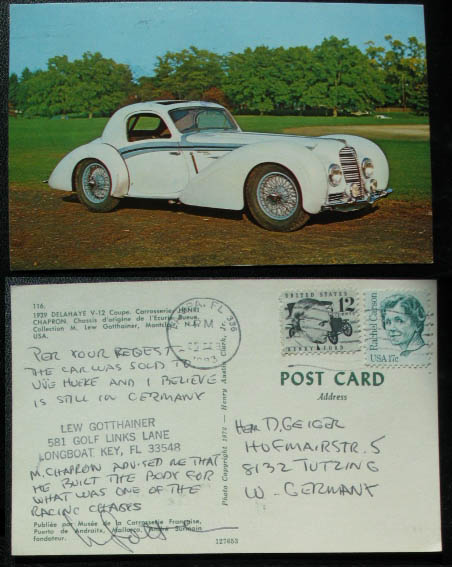 116.
1939 DELAHAYE V-12 Coupe. Carrosserie: HENRI
CHAPRON. Chassis d'origine de l'Ecurie Bueue.
Collection M. Lew Gotthainer, Montclair, N.J.
USA.
PER YOUR REQEST
THE CAR WAS SOLD TO
UVE HUCKE AND I BELIEVE
IS STILL IN GERMANY
LEW GOTTHAINER
581 GOLF LINKS LANE
LONGBOAT KEY, FL 33548
M. CHAPRON ADVISED ME THAT
HE BUILT THE BODY FOR
WHAT WAS ONE OF THE
RACING CHASES
Publiée par Musée de la Carrosserie Française,
Puerto de Andraitx, Mallorca, André Surmain
fondateur.
127653
Photo Copyright 1975 — Henry Austin Clark, Jr.
FL 336
PM
1983
UNITED STATES
12
HENRY FORD
Rachel Carson
USA 17c
POST CARD
Address
HERR D. GEIGER
HOFMAIRSTR. 5
8132 TUTZING
W. GERMANY